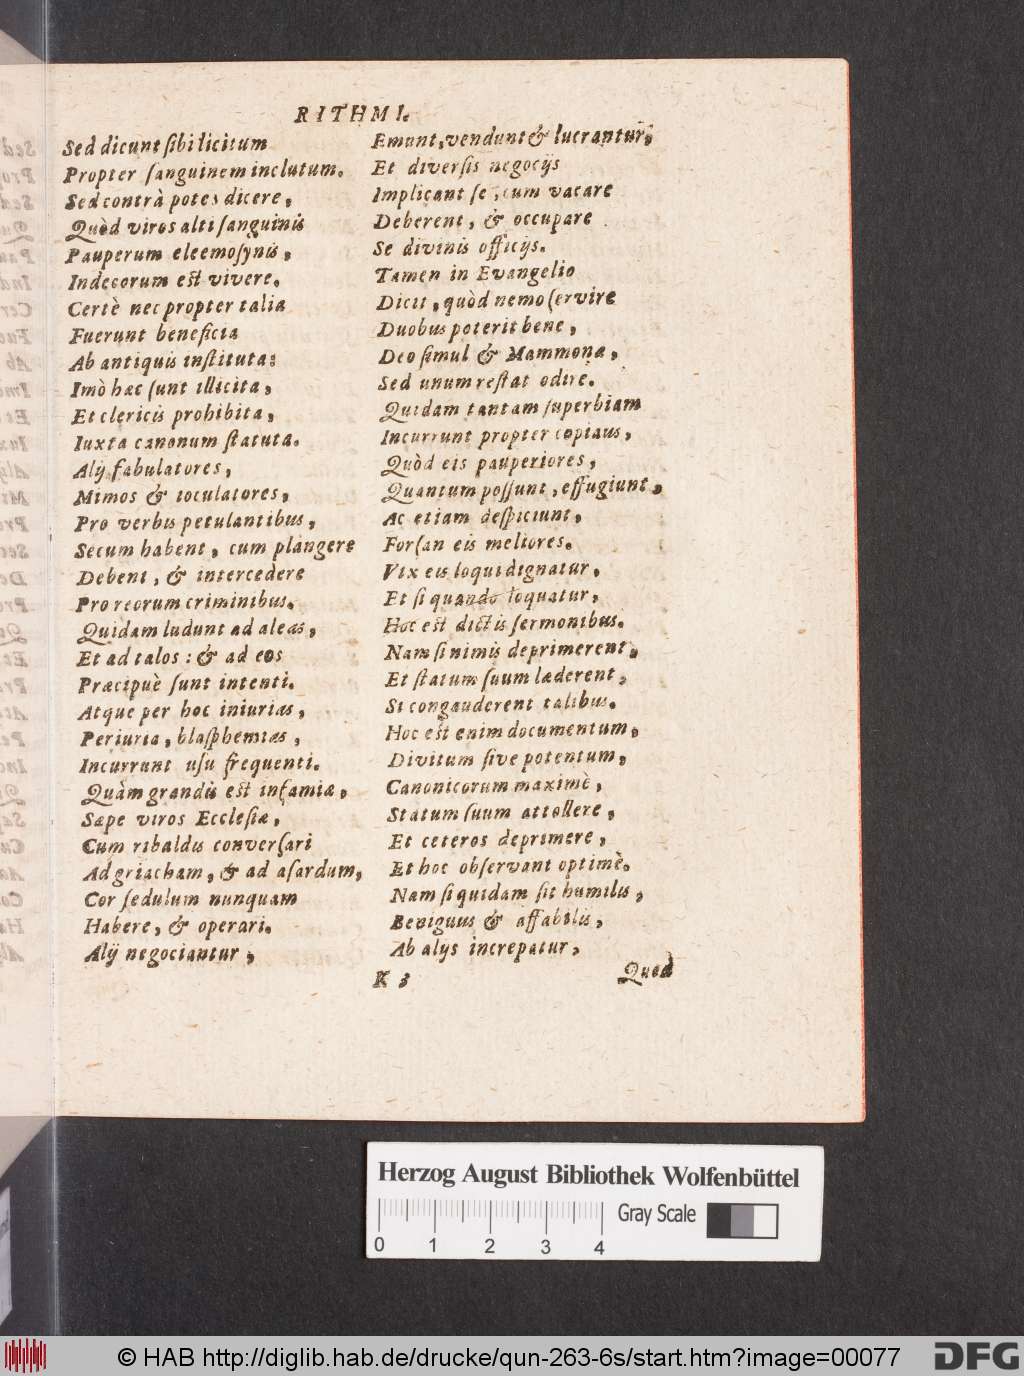 RITHMI.
Sed dicunt sibi licitum
Propter sanguinem inclutum.
Sed contrà potes dicere,
Quòd viros alti sanguinis
Pauperum eleemosynis,
Indecorum est vivere.
Certè nec propter talia
Fuerunt beneficta
Ab antiquis instituta:
Imò hæc sunt illicita,
Et clericis prohibita,
Iuxta canonum statuta.
Alij fabulatores,
Mimos & ioculatores,
Pro verbis petulantibus,
Secum habent, cum plangere
Debent, & intercedere
Pro reorum criminibus.
Quidam ludunt ad aleas,
Et ad talos: & ad eos
Præcipuè sunt intenti.
Atque per hoc iniurias,
Periuria, blasphemias,
Incurrunt usu frequenti.
Quàm grandis est infamia,
Sæpe viros Ecclesiæ,
Cum ribaldis conversari
Ad griacham, & ad asardum,
Cor sedulum nunquam
Habere, & operari.
Alij negociantur,
Emunt, vendunt & lucrantur,
Et diversis negocijs
Implicant se, cum vacare
Deberent, & occupare
Se divinis officijs.
Tamen in Evangelio
Dicit, quòd nemo servire
Duobus poterit bene,
Deo simul & Mammonæ,
Sed unum restat odire.
Quidam tantam superbiam
Incurrunt propter copiaus,
Quòd eis pauperiores,
Quantum possunt, effugiunt,
Ac etiam despiciunt,
Forsan eis meliores.
Vix eis loqui dignatur,
Et si quando loquatur,
Hoc est dictis sermonibus.
Nam si nimis deprimerent,
Et statum suum læderent,
Si congauderent talibus.
Hoc est enim documentum,
Divitum sive potentum,
Canonicorum maximè,
Statum suum attollere,
Et ceteros deprimere,
Et hoc observant optimè.
Nam si quidam sit humilis,
Benignus & affabilis,
Ab alijs increpatur,
K 3
Quod
Herzog August Bibliothek Wolfenbüttel
Gray Scale
0 1 2 3 4
© HAB http://diglib.hab.de/drucke/qun-263-6s/start.htm?image=00077
DFG